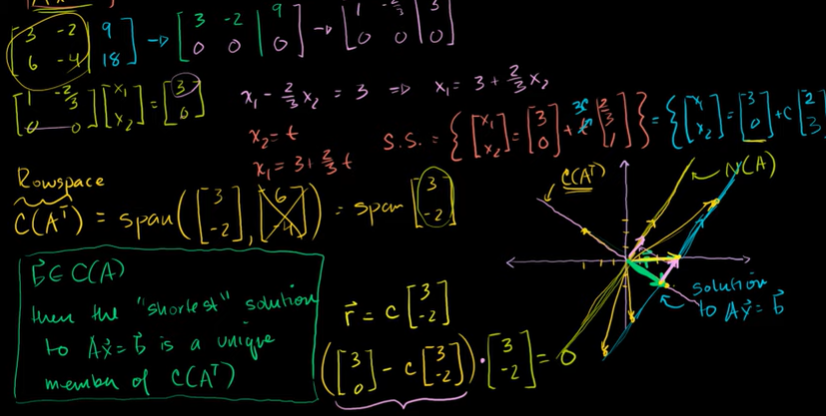 [3 -2 | 9; 6 -4 | 18] → [3 -2 | 9; 0 0 | 0] → [1 -2/3 | 3; 0 0 | 0]
[1 -2/3; 0 0][x₁; x₂] = [3; 0]
x₁ - 2/3 x₂ = 3 ⇒ x₁ = 3 + 2/3 x₂
x₂ = t
x₁ = 3 + 2/3 t
S.S. = {[x₁; x₂] = [3; 0] + t [2/3; 1]} = {[x₁; x₂] = [3; 0] + c [2; 3]
Rowspace
C(Aᵀ) = span([3; -2], [6; -4]) = span [3; -2]
C(Aᵀ)
N(A)
solution
to Ax⃗ = b⃗
b⃗ ∈ C(A)
then the "shortest" solution
to Ax⃗ = b⃗ is a unique
member of C(Aᵀ)
r⃗ = c [3; -2]
([3; 0] - c [3; -2]) · [3; -2] = 0